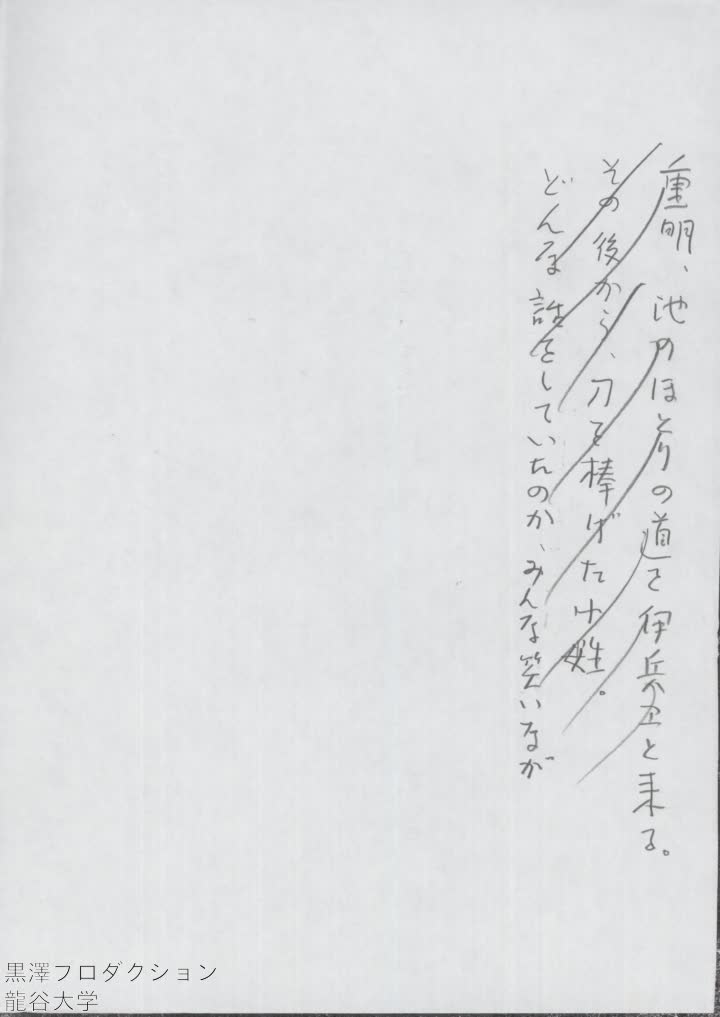 重明、池のほとりの道を伊兵衛と来る。
その後から、刀を捧げた小姓。
どんな話をしていたのか、みんな笑いなが
黒澤プロダクション
龍谷大学